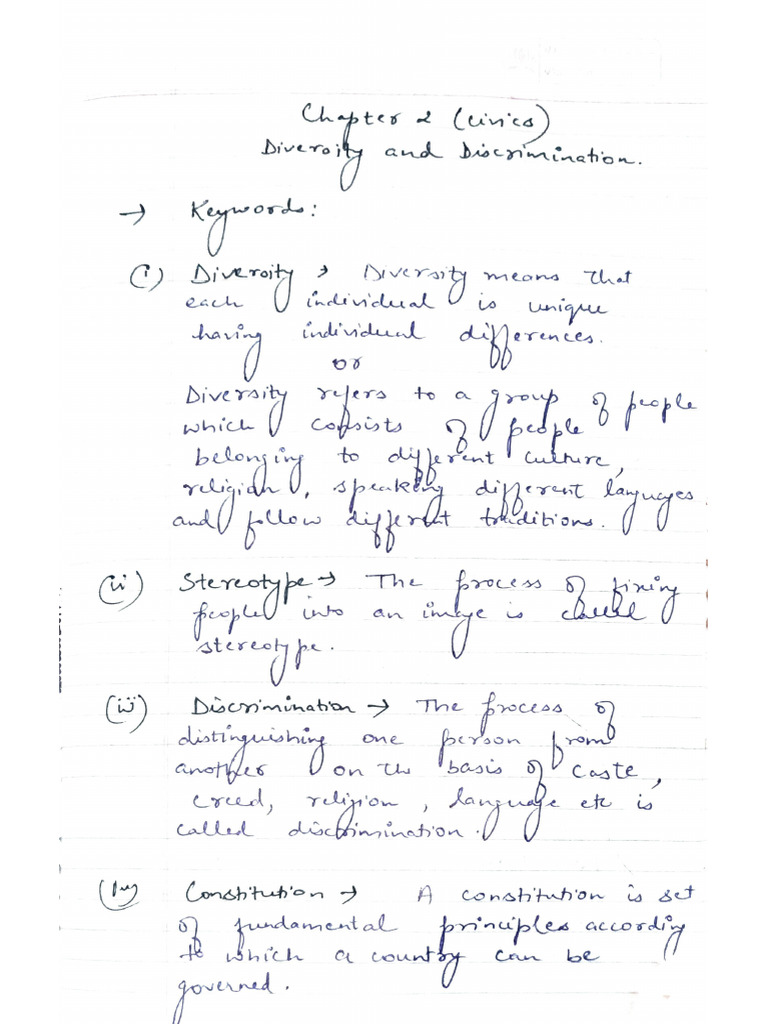 Chapter 2 (Civics)
Diversity and Discrimination.
→ Keywords:
(i) Diversity → Diversity means that
each individual is unique
having individual differences.
or
Diversity refers to a group of people
which consists of people
belonging to different culture,
religion, speaking different languages
and follow different traditions.
(ii) Stereotype → The process of fixing
people into an image is called
stereotype.
(iii) Discrimination → The process of
distinguishing one person from
another on the basis of caste,
creed, religion, language etc is
called discrimination.
(iv) Constitution → A constitution is set
of fundamental principles according
to which a country can be
governed.